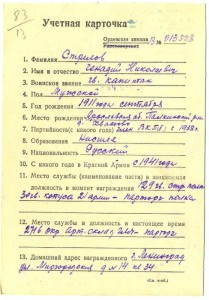 83
13
Учетная карточка
Орденская книжка
№ 013328
1. Фамилия Стрилов
2. Имя и отчество Геннадий Николаевич
3. Воинское звание гв. капитан
4. Пол Мужской
5. Год рождения 1911 год сентября
6. Место рождения Ярославская об.
7. Партийность (с какого года) член ВКП(б) с 1938 г.
8. Образование Высшее
9. Национальность Русский
10. С какого года в Красной Армии с 1941 года
11. Место службы (наименование части) и занимаемая
должность в момент награждения 129 гв. стр. полк
30 гв. корпуса 21 армии - парторг полка
12. Место службы и должность в настоящее время
парторг
13. Домашний адрес награжденного г. Ленинград
ул. Миргородская д № 14 кв 34